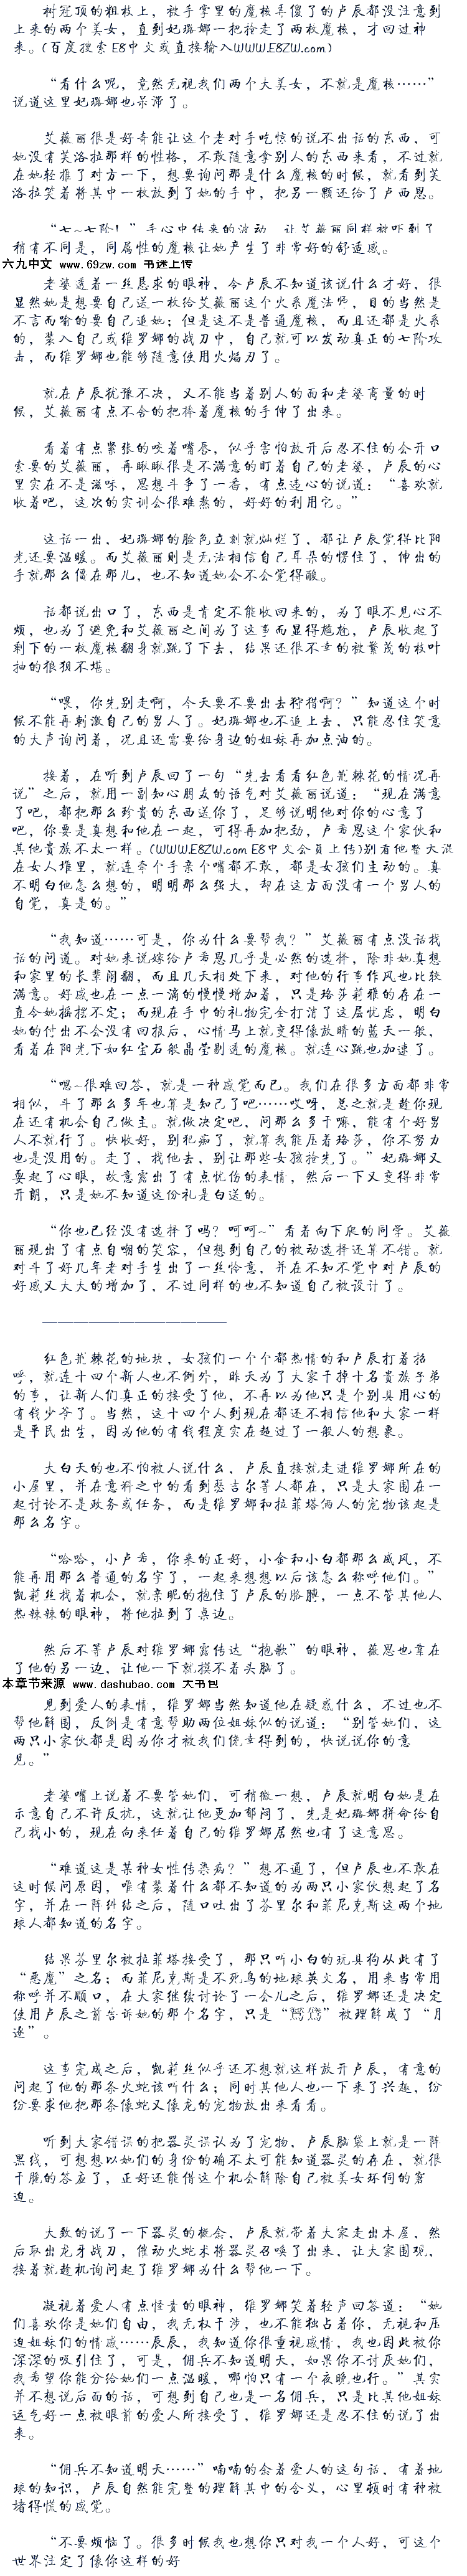 树冠顶的粗枝上，被手掌里的魔核弄傻了的卢辰都没注意到
上来的两个美女，直到妃璐娜一把抢走了两枚魔核，才回过神
来。(百度搜索E8中文或直接输入WWW.E8ZW.com)
“看什么呢，竟然无视我们两个大美女，不就是魔核……”
说道这里妃璐娜也呆滞了。
艾薇丽很是好奇能让这个老对手吃惊的说不出话的东西，可
她没有芙洛拉那样的性格，不敢随意拿别人的东西来看，不过就
在她轻推了对方一下，想要询问那是什么魔核的时候，就看到芙
洛拉笑着将其中一枚放到了她的手中，把另一颗还给了卢西恩。
“七~七阶！”手心中传来的波动，让艾薇丽同样被吓到了
稍有不同是，同属性的魔核让她产生了非常好的舒适感。
六九中文 www.69zw.com 书迷上传
老婆透着一丝恳求的眼神，令卢辰不知道该说什么才好，很
显然她是想要自己送一枚给艾薇丽这个火系魔法师，目的当然是
不言而喻的要自己追她；但是这不是普通魔核，而且还都是火系
的，装入自己或维罗娜的战刀中，自己就可以发动真正的七阶攻
击，而维罗娜也能够随意使用火焰刃了。
就在卢辰犹豫不决，又不能当着别人的面和老婆商量的时
候，艾薇丽有点不舍的把拎着魔核的手伸了出来。
看着有点紧张的咬着嘴唇，似乎害怕放开后忍不住的会开口
索要的艾薇丽，再瞅瞅很是不满意的盯着自己的老婆，卢辰的心
里实在不是滋味，思想斗争了一番，有点违心的说道：“喜欢就
收着吧，这次的实训会很难熬的，好好的利用它。”
这话一出，妃璐娜的脸色立刻就灿烂了，都让卢辰觉得比阳
光还要温暖。而艾薇丽则是无法相信自己耳朵的愣住了，伸出的
手就那么僵在那儿，也不知道她会不会觉得酸。
话都说出口了，东西是肯定不能收回来的，为了眼不见心不
烦，也为了避免和艾薇丽之间为了这事而显得尴尬，卢辰收起了
剩下的一枚魔核翻身就跳了下去，结果还很不幸的被繁茂的枝叶
抽的狼狈不堪。
“喂，你先别走啊，今天要不要出去狩猎啊？”知道这个时
候不能再刺激自己的男人了。妃璐娜也不追上去，只能忍住笑意
的大声询问着，况且还需要给身边的姐妹再加点油的。
接着，在听到卢辰回了一句“先去看看红色荆棘花的情况再
说”之后，就用一副知心朋友的语气对艾薇丽说道：“现在满意
了吧，都把那么珍贵的东西送你了，足够说明他对你的心意了
吧，你要是真想和他在一起，可得再加把劲，卢西恩这个家伙和
其他贵族不太一样。(WWW.E8ZW.com E8中文会员上传)别看他整天混
在女人堆里，就连牵个手亲个嘴都不敢，都是女孩们主动的。真
不明白他怎么想的，明明那么强大，却在这方面没有一个男人的
自觉，真是的。”
“我知道……可是，你为什么要帮我？”艾薇丽有点没话找
话的问道。对她来说嫁给卢西恩几乎是必然的选择，除非她真想
和家里的长辈闹翻，而且几天相处下来，对他的行事作风也比较
满意。好感也在一点一滴的慢慢增加着，只是珞莎莉雅的存在一
直令她摇摆不定；而现在手中的礼物完全打消了这层忧虑，明白
她的付出不会没有回报后，心情马上就变得像放晴的蓝天一般，
看着在阳光下如红宝石般晶莹剔透的魔核。就连心跳也加速了。
“嗯~很难回答，就是一种感觉而已。我们在很多方面都非常
相似，斗了那么多年也算是知己了吧……哎呀，总之就是趁你现
在还有机会自己做主。就做决定吧，问那么多干嘛，能有个好男
人不就行了。快收好，别犯痴了，就算我能压着珞莎，你不努力
也是没用的。走了，找他去，别让那些女孩抢先了。”妃璐娜又
耍起了心眼，故意露出了有点忧伤的表情，然后一下又变得非常
开朗，只是她不知道这份礼是白送的。
“你也已经没有选择了吗？呵呵~”看着向下爬的同学。艾薇
丽现出了有点自嘲的笑容，但想到自己的被动选择还算不错。就
对斗了好几年老对手生出了一丝怜意，并在不知不觉中对卢辰的
好感又大大的增加了，不过同样的也不知道自己被设计了。
————————————
红色荆棘花的地块，女孩们一个个都热情的和卢辰打着招
呼，就连十四个新人也不例外，昨天为了大家干掉十名贵族子弟
的事，让新人们真正的接受了他，不再以为他只是个别具用心的
有钱少爷了。当然，这十四个人到现在都还不相信他和大家一样
是平民出生，因为他的有钱程度实在超过了一般人的想象。
大白天的也不怕被人说什么，卢辰直接就走进维罗娜所在的
小屋里，并在意料之中的看到瑟吉尔等人都在，只是大家围在一
起讨论不是政务或任务，而是维罗娜和拉菲塔俩人的宠物该起是
那么名字。
“哈哈，小卢西，你来的正好，小金和小白都那么威风，不
能再用那么普通的名字了，一起来想想以后该怎么称呼他们。”
凯莉丝找着机会，就亲昵的抱住了卢辰的胳膊，一点不管其他人
热辣辣的眼神，将他拉到了桌边。
然后不等卢辰对维罗娜露传达“抱歉”的眼神，薇恩也靠在
了他的另一边，让他一下就摸不着头脑了。
本章节来源 www.dashubao.com 大书包
见到爱人的表情，维罗娜当然知道他在疑惑什么，不过也不
帮他解围，反倒是有意帮助两位姐妹似的说道：“别管她们，这
两只小家伙都是因为你才被我们侥幸得到的，快说说你的意
见。”
老婆嘴上说着不要管她们，可稍微一想，卢辰就明白她是在
示意自己不许反抗，这就让他更加郁闷了，先是妃璐娜拼命给自
己找小的，现在向来任着自己的维罗娜居然也有了这意思。
“难道这是某种女性传染病？”想不通了，但卢辰也不敢在
这时候问原因，唯有装着什么都不知道的为两只小家伙想起了名
字，并在一阵纠结之后，随口吐出了芬里尔和菲尼克斯这两个地
球人都知道的名字。
结果芬里尔被拉菲塔接受了，那只听小白的玩具狗从此有了
“恶魔”之名；而菲尼克斯是不死鸟的地球英文名，用来当常用
称呼并不顺口，在大家继续讨论了一会儿之后，维罗娜还是决定
使用卢辰之前告诉她的那个名字，只是“”被理解成了“月
逐”。
这事完成之后，凯莉丝似乎还不想就这样放开卢辰，有意的
问起了他的那条火蛇该叫什么；同时其他人也一下来了兴趣，纷
纷要求他把那条像蛇又像龙的宠物放出来看看。
听到大家错误的把器灵误认为了宠物，卢辰脑袋上就是一阵
黑线，可想想以她们的身份的确不太可能知道器灵的存在，就很
干脆的答应了，正好还能借这个机会解除自己被美女环伺的窘
迫。
大致的说了一下器灵的概念，卢辰就带着大家走出木屋，然
后取出龙牙战刀，催动火蛇术将器灵召唤了出来，让大家围观，
接着就趁机询问起了维罗娜为什么帮他一下。
凝视着爱人有点怪责的眼神，维罗娜笑着轻声回答道：“她
们喜欢你是她们自由，我无权干涉，也不能独占着你，无视和压
迫姐妹们的情感……辰辰，我知道你很重视感情，我也因此被你
深深的吸引住了，可是，佣兵不知道明天，如果你不讨厌她们，
我希望你能分给她们一点温暖，哪怕只有一个夜晚也行。”其实
并不想说后面的话，可想到自己也是一名佣兵，只是比其他姐妹
运气好一点被眼前的爱人所接受了，维罗娜还是忍不住的说了出
来。
“佣兵不知道明天……”喃喃的念着爱人的这句话，有着地
球的知识，卢辰自然能完整的理解其中的含义，心里顿时有种被
堵得慌的感觉。
“不要烦恼了。很多时候我也想你只对我一个人好，可这个
世界注定了像你这样的好